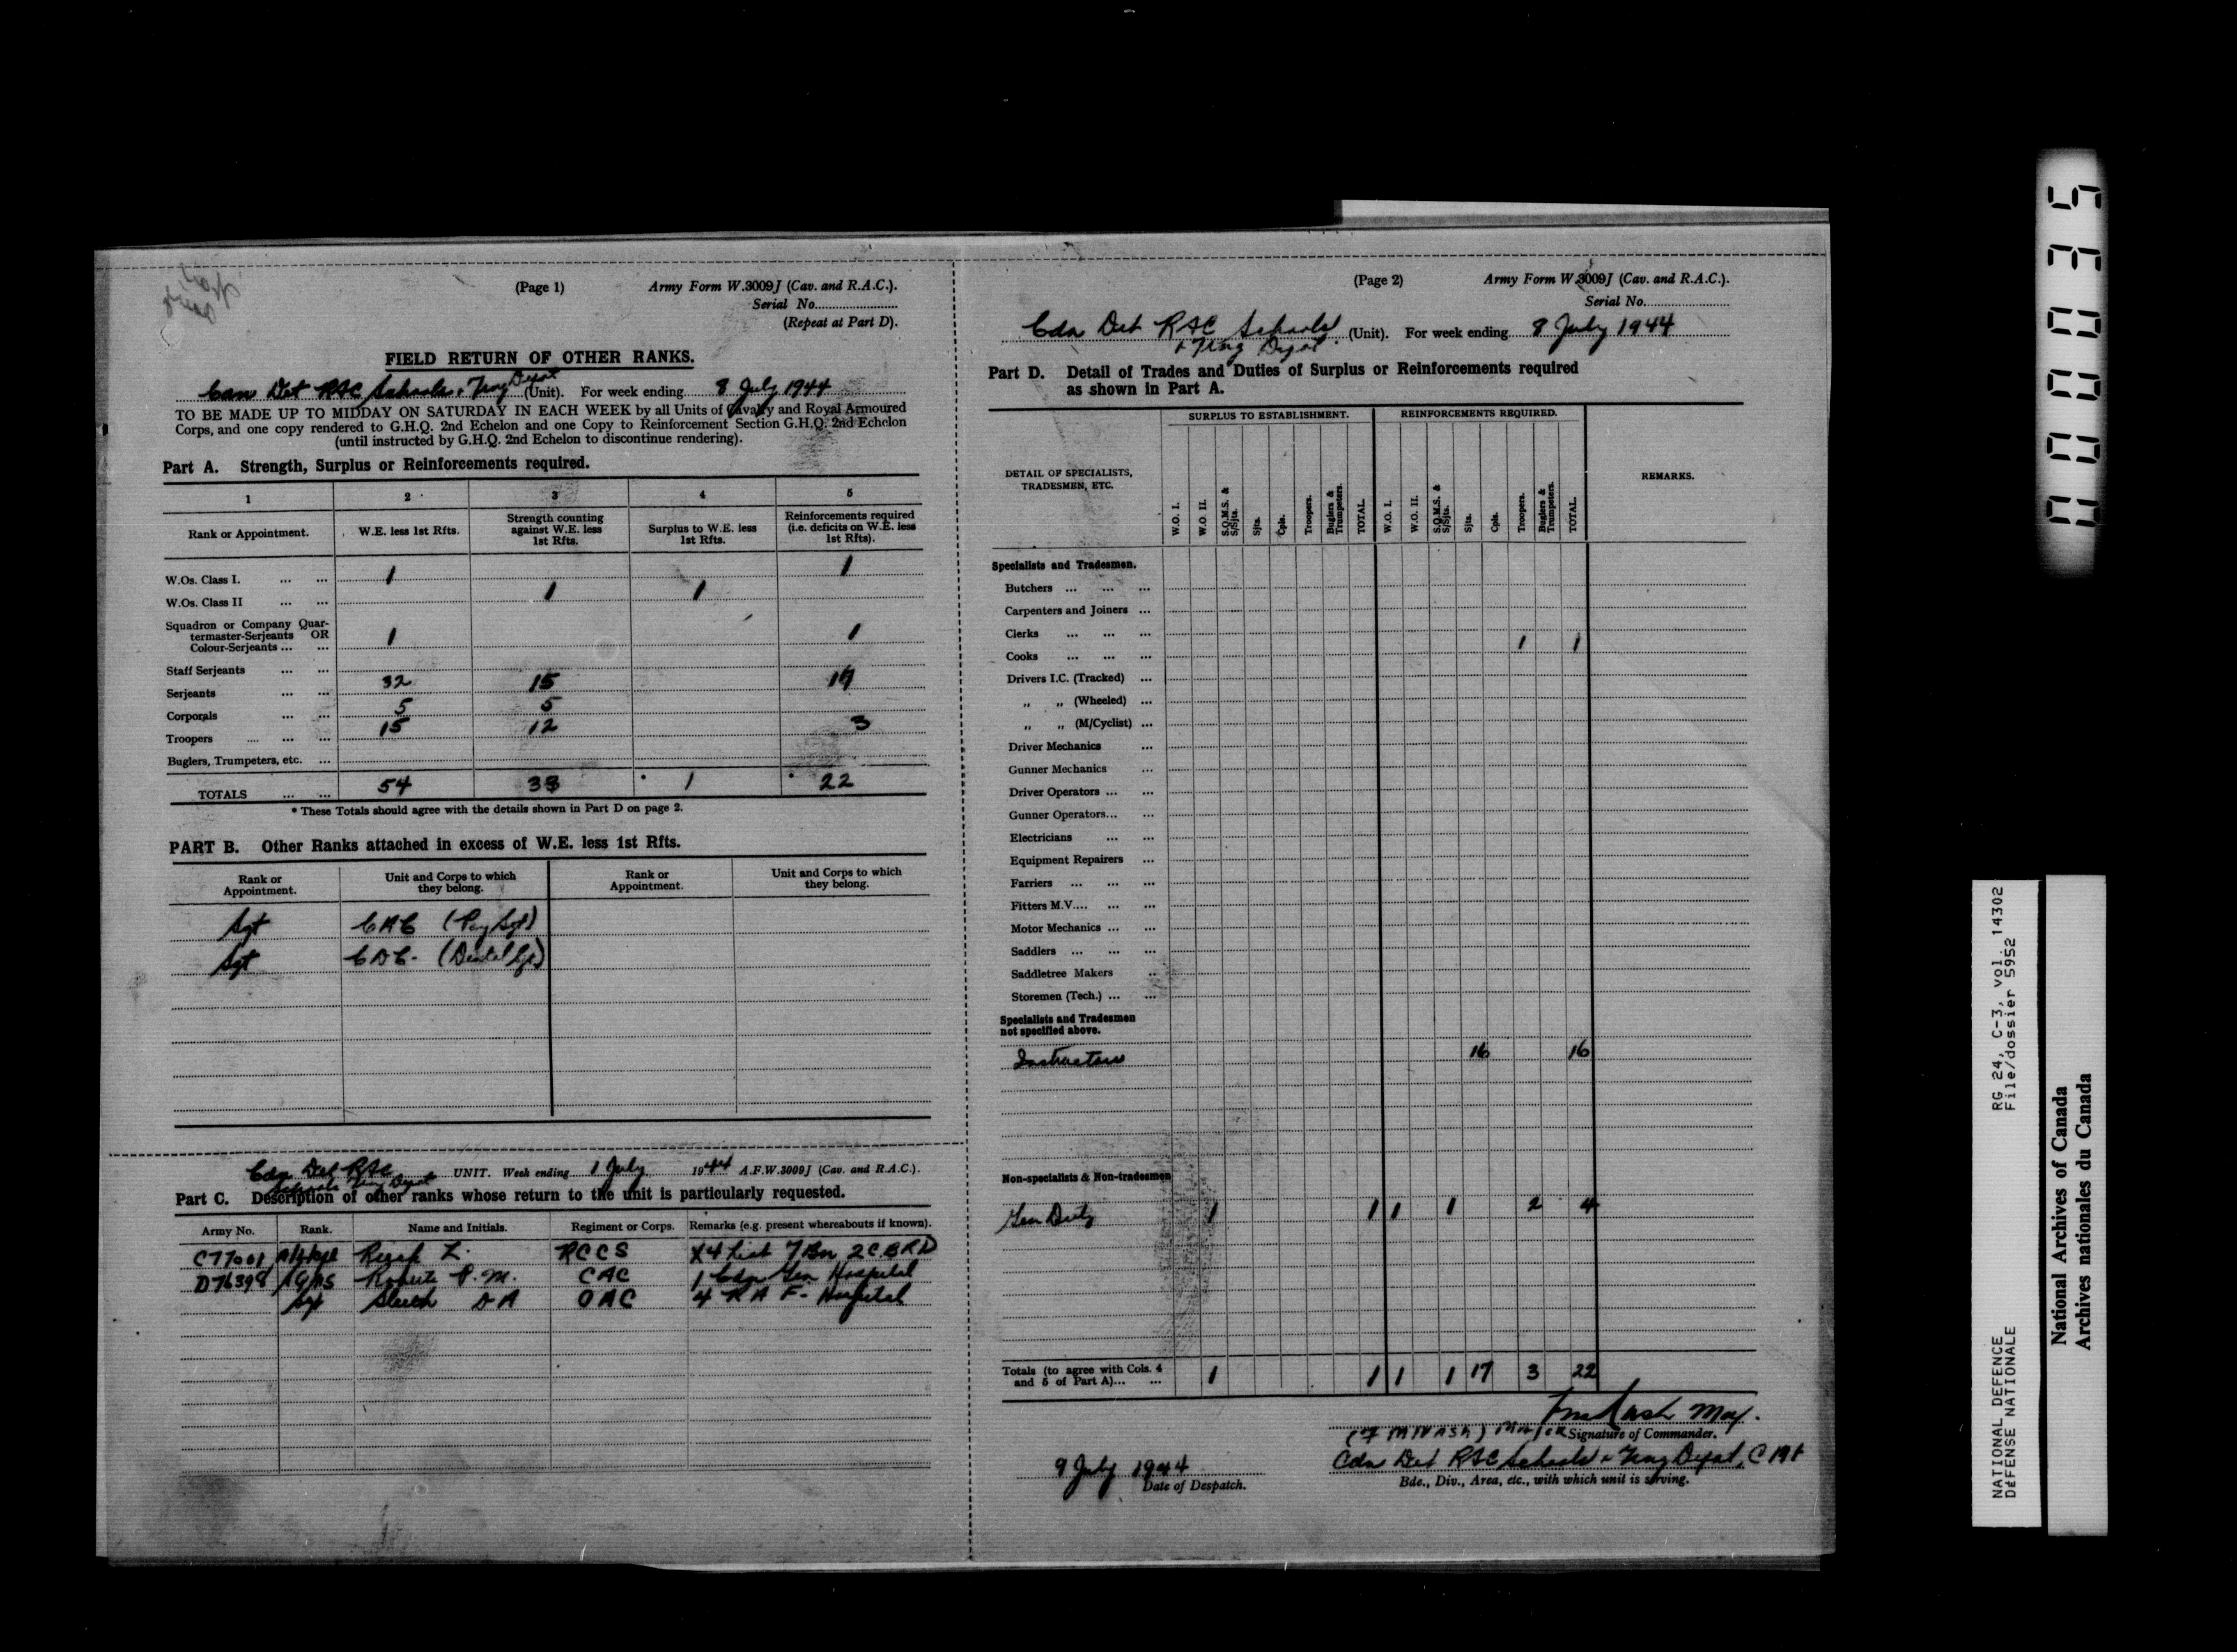 (Page 1) Army Form W.3009J (Cav. and R.A.C.).
Serial No.
(Repeat at Part D).
FIELD RETURN OF OTHER RANKS.
Can Det RAC Schools & Trng Depot (Unit). For week ending 8 July 1944
TO BE MADE UP TO MIDDAY ON SATURDAY IN EACH WEEK by all Units of Cavalry and Royal Armoured
Corps, and one copy rendered to G.H.Q. 2nd Echelon and one Copy to Reinforcement Section G.H.Q. 2nd Echelon
(until instructed by G.H.Q. 2nd Echelon to discontinue rendering).
Part A. Strength, Surplus or Reinforcements required.
1 2 3 4 5
Rank or Appointment. W.E. less 1st Rfts. Strength counting against W.E. less 1st Rfts. Surplus to W.E. less 1st Rfts. Reinforcements required (i.e. deficits on W.E. less 1st Rfts).
W.Os. Class I. ... ... 1 1
W.Os. Class II ... ... 1 1
Squadron or Company Quar-
termaster-Serjeants OR 1 1
Colour-Serjeants ... ...
Staff Serjeants ... ...
Serjeants ... ... 32 15 17
Corporals ... ... 5 5
Troopers ... ... ... 15 12 3
Buglers, Trumpeters, etc. ...
TOTALS ... ... 54 33 * 1 * 22
* These Totals should agree with the details shown in Part D on page 2.
PART B. Other Ranks attached in excess of W.E. less 1st Rfts.
Rank or Appointment. Unit and Corps to which they belong. Rank or Appointment. Unit and Corps to which they belong.
Sgt CAC (Pay Sgt)
Sgt CDC. (Dental Sgt)
Cdn Det RAC UNIT. Week ending 1 July 1944 A.F.W.3009J (Cav. and R.A.C.).
Schools Trng Depot
Part C. Description of other ranks whose return to the unit is particularly requested.
Army No. Rank. Name and Initials. Regiment or Corps. Remarks (e.g. present whereabouts if known).
C77001 L. RCCS X4 List 7 Bn 2 C.B.R.D
D76398 P.M. CAC 1 Cdn Gen Hospital
Sgt D A CAC 4 R A F. Hospital
(Page 2) Army Form W.3009J (Cav. and R.A.C.).
Serial No.
Cdn Det RAC Schools (Unit). For week ending 8 July 1944
& Trng Depot.
Part D. Detail of Trades and Duties of Surplus or Reinforcements required
as shown in Part A.
SURPLUS TO ESTABLISHMENT. REINFORCEMENTS REQUIRED.
DETAIL OF SPECIALISTS, TRADESMEN, ETC. W.O. I. W.O. II. S.Q.M.S. & S/Sjts. Sjts. Cpls. Troopers. Buglers & Trumpeters. TOTAL. W.O. I. W.O. II. S.Q.M.S. & S/Sjts. Sjts. Cpls. Troopers. Buglers & Trumpeters. TOTAL. REMARKS.
Specialists and Tradesmen.
Butchers ... ... ...
Carpenters and Joiners ...
Clerks ... ... ...
Cooks ... ... ... 1 1
Drivers I.C. (Tracked) ...
„ „ (Wheeled) ...
„ „ (M/Cyclist) ...
Driver Mechanics ...
Gunner Mechanics ...
Driver Operators ... ...
Gunner Operators... ...
Electricians ... ...
Equipment Repairers ...
Farriers ... ... ...
Fitters M.V.... ... ...
Motor Mechanics ... ...
Saddlers ... ... ...
Saddletree Makers ..
Storemen (Tech.) ... ...
Specialists and Tradesmen
not specified above.
Instructors 16 16
Non-specialists & Non-tradesmen
Gen Duty 1 1 1 1 2 4
Totals (to agree with Cols. 4
and 5 of Part A)... ... 1 1 1 1 17 3 22
Maj.
Major Signature of Commander.
9 July 1944 Cdn Det RAC Schools & Trng Depot,
Date of Despatch. Bde., Div., Area, etc., with which unit is serving.
000035
RG 24, C-3, vol. 14302
File/dossier 5952
NATIONAL DEFENCE
DÉFENSE NATIONALE
National Archives of Canada
Archives nationales du Canada